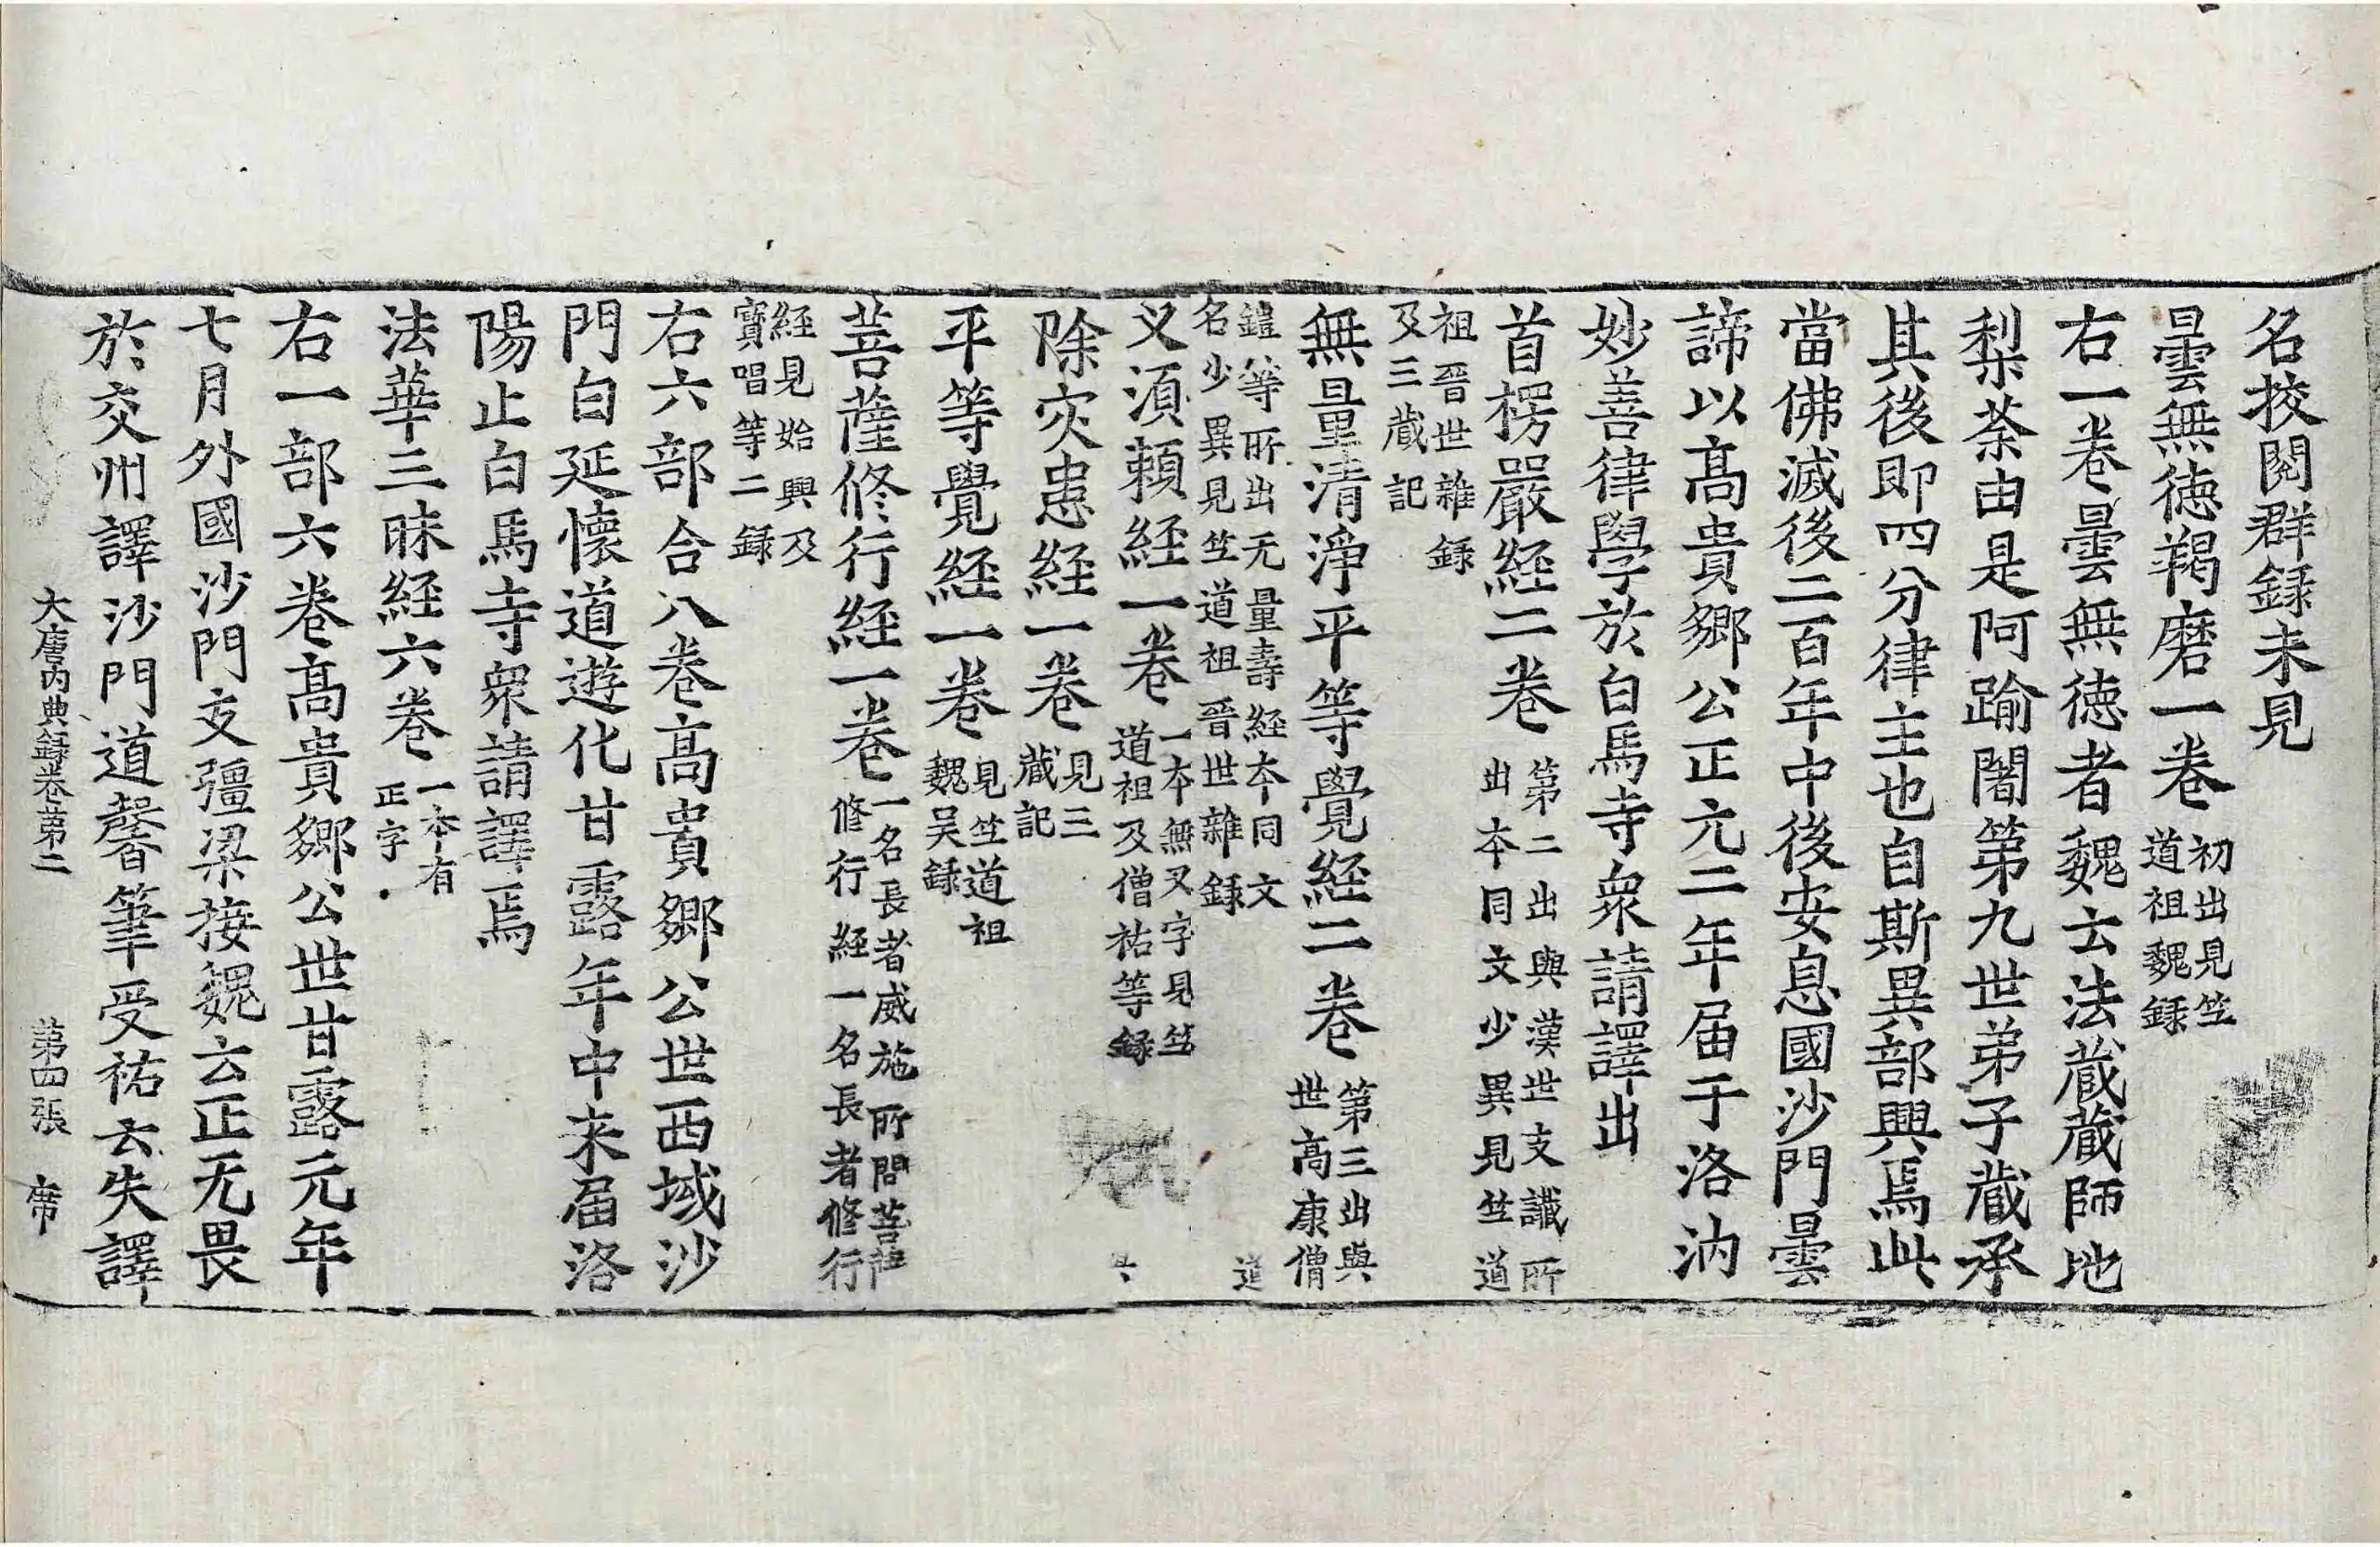 名挍閱群録未見
曇無徳羯磨一卷初出見竺道祖魏録
右一卷曇無徳者魏云法蔵蔵師地
梨荼由是阿踰闍第九世弟子蔵承
其後即四分律主也自斯異部興焉此
當佛滅後二百年中後安息國沙門曇
諦以髙貴郷公正元二年届于洛汭
妙善律學於白馬寺衆請譯出
首楞嚴経二卷第二出與漢世支讖所出夲同文少異見竺道
祖晉世雜録及三蔵記
無量清淨平等覺経二卷第三出與世髙康僧
鎧等所出无量壽経夲同文名少異見竺道祖晉世雜録
又湏頼経一卷一夲無又字見竺道祖及僧祐等録
除灾患経一卷見三蔵記
平等覺経一卷見竺道祖魏吴録
菩薩修行経一卷一名長者威施所問菩薩修行経一名長者修行
経見始興及寶唱等二録
右六部合八卷髙貴郷公世西域沙
門白延懐道遊化甘露年中来届洛
陽止白馬寺衆請譯焉
法華三昧経六卷一本有正字
右一部六卷髙貴郷公世甘露元年
七月外國沙門支彊梁接魏云正无畏
於交州譯沙門道馨筆受祐云失譯
大唐内典録卷第二 第四張 席